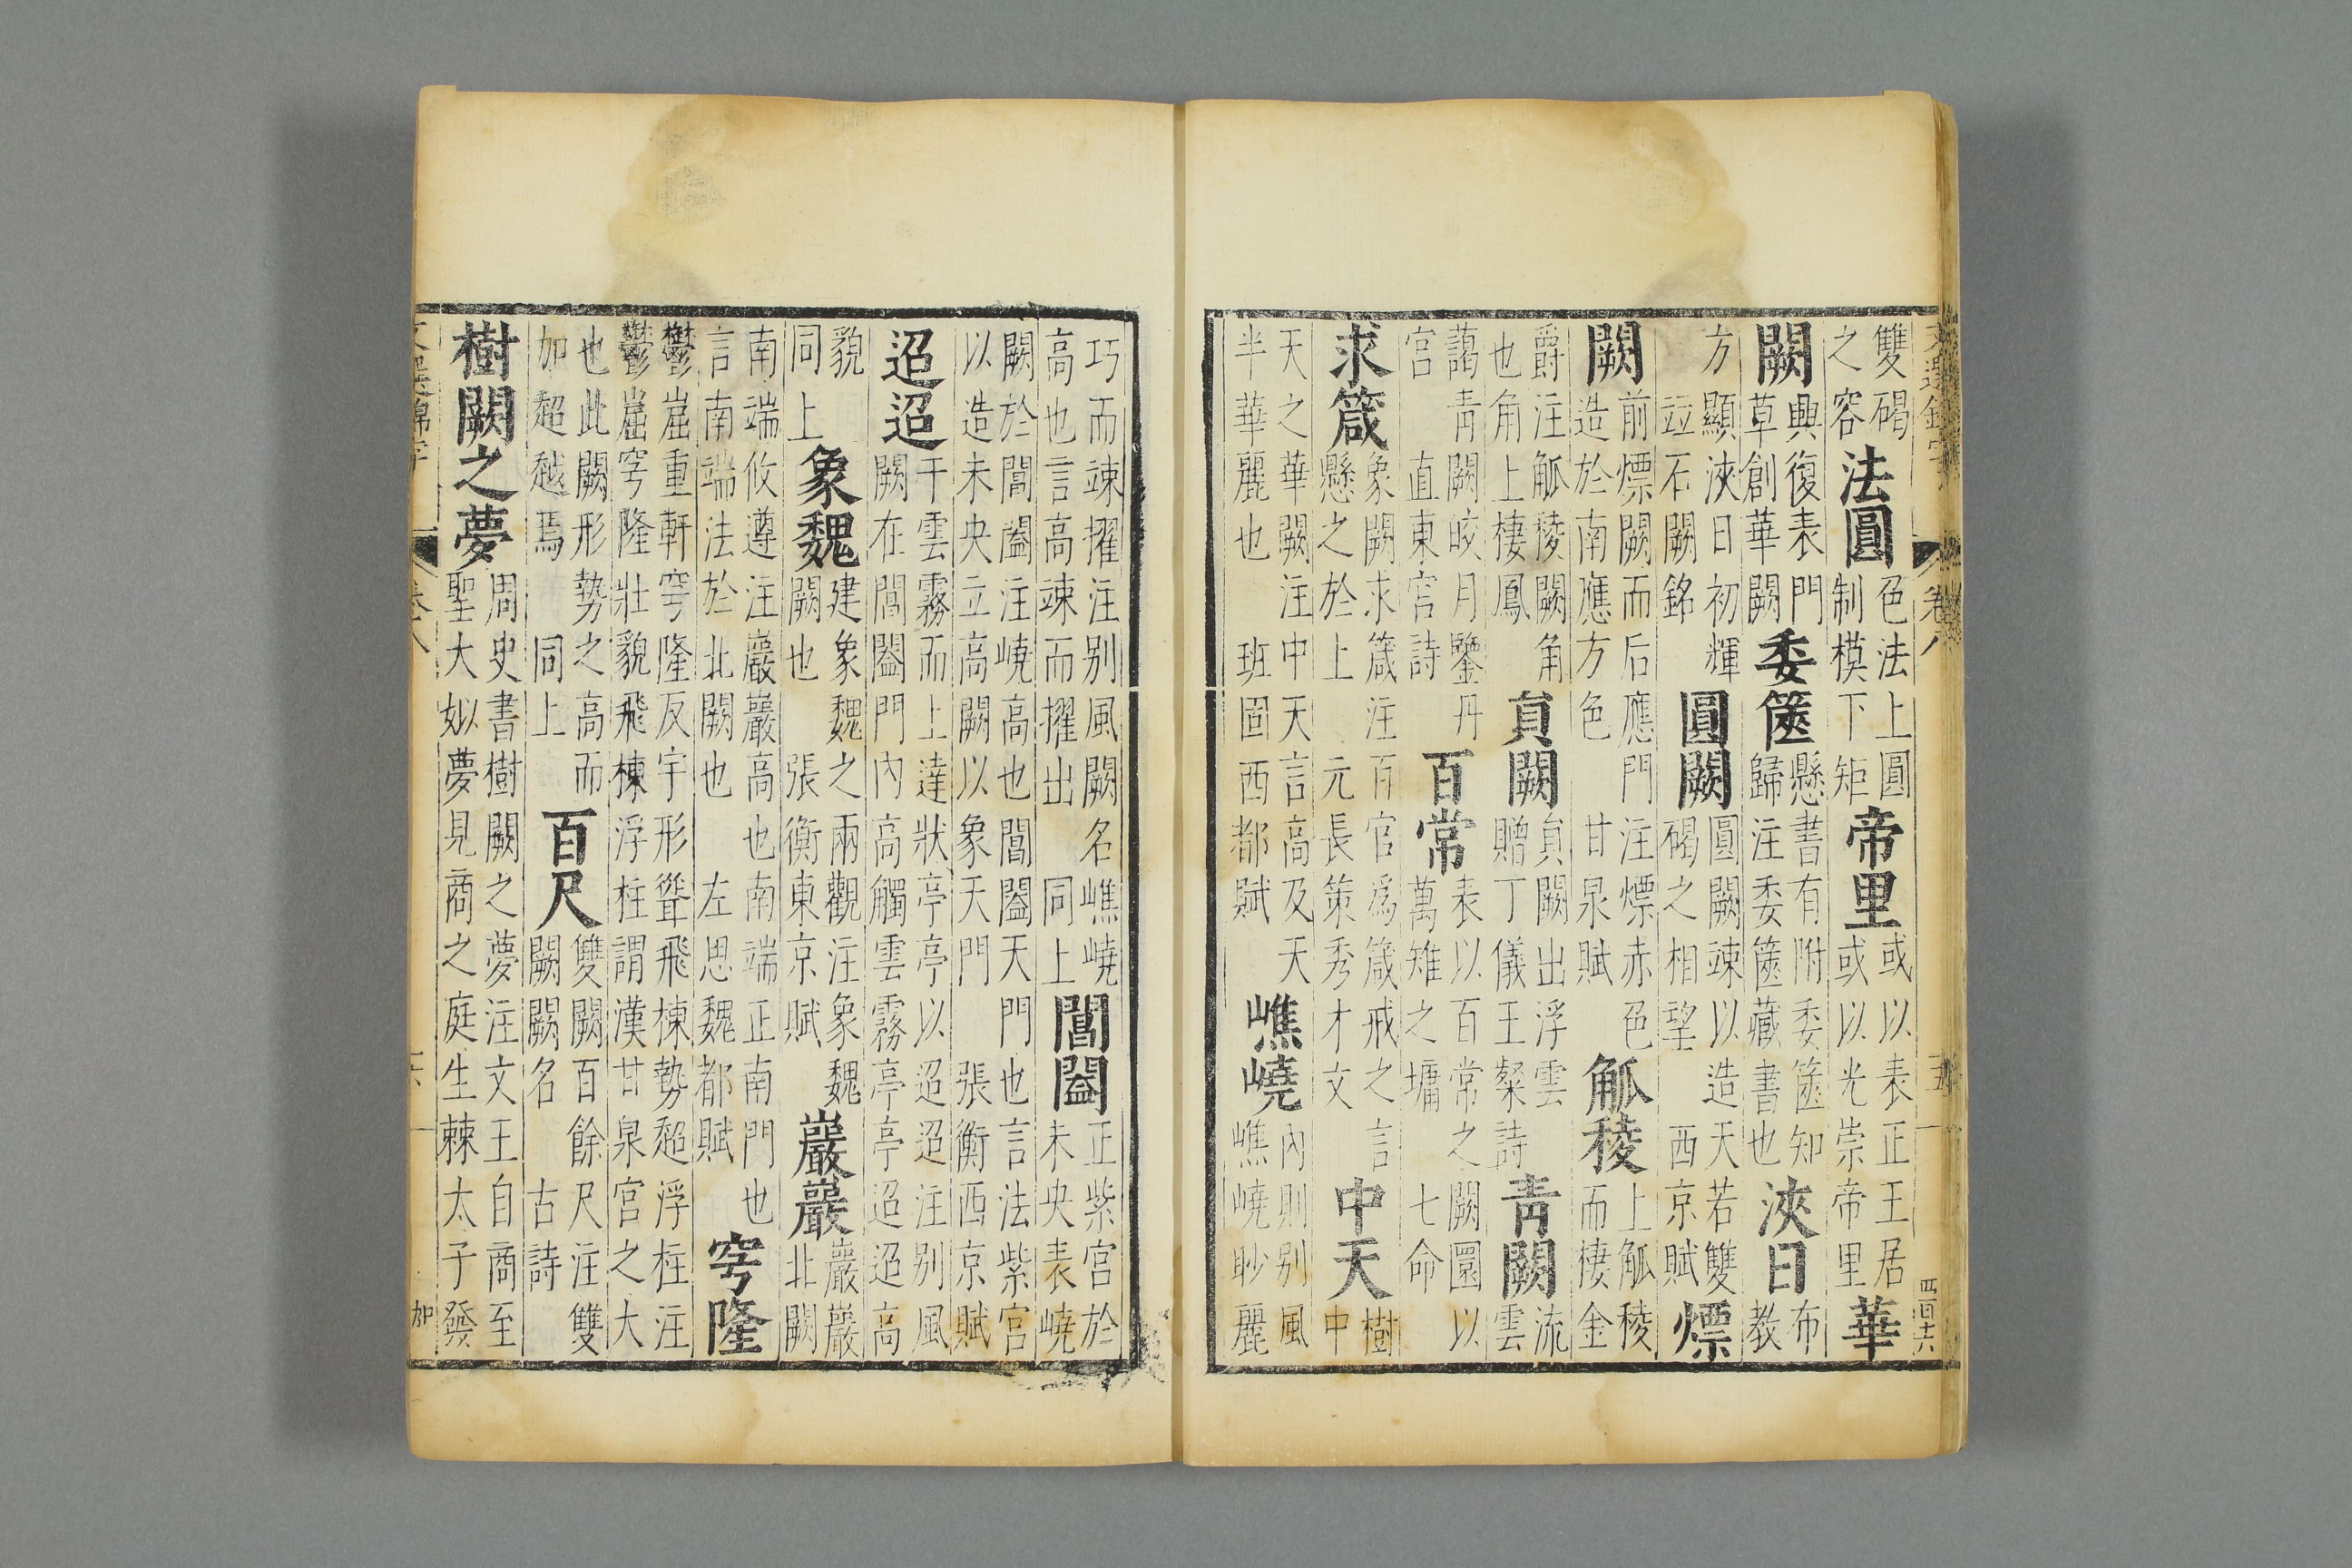 文選錦字 卷八 五 四百十六
雙碣之容法圓色法上圓制模下矩帝里或以表正王居或以光崇帝里華
闕興復表門草創華闕委篋懸書有附委篋知歸注委篋藏書也浹日布教
方顯浹日初輝竝石闕銘圓闕圓闕竦以造天若雙碣之相望西京賦熛
闕前熛闕而后應門注熛赤色造於南應方色甘泉賦觚稜上觚稜而棲金
爵注觚稜闕角也角上棲鳳貟闕貟闕出浮雲贈丁儀王粲詩青闕流雲
藹青闕皎月鑒丹宮直東宮詩百常表以百常之闕圜以萬雉之墉七命
求箴象闕求箴注百官爲箴戒之言懸之於上元長策秀才文中天樹中
天之華闕注中天言高及天半華麗也班固西都賦嶕嶢內則别風嶕嶢眇麗
巧而竦擢注别風闕名嶕嶢高也言高竦而擢出同上閶闔正紫宮於未央表嶢
闕於閶闔注嶢高也閶闔天門也言法紫宮以造未央立高闕以象天門張衡西京賦
迢迢干雲霧而上達狀亭亭以迢迢注别風闕在閶闔門內高觸雲霧亭亭迢迢高
貌同上象魏建象魏之兩觀注象魏闕也張衡東京賦巖巖巖巖北闕
南端攸遵注巖巖高也南端正南門也言南端法於北闕也左思魏都賦穹隆
欝崫重軒穹隆反宇形聳飛棟勢超浮柱注欝崫穹隆壯貌飛棟浮柱謂漢甘泉宮之大
也此闕形勢之高而加超越焉同上百尺雙闕百餘尺注雙闕闕名古詩
樹闕之夢周史書樹闕之夢注文王自商至聖大姒夢見商之庭生棘太子發